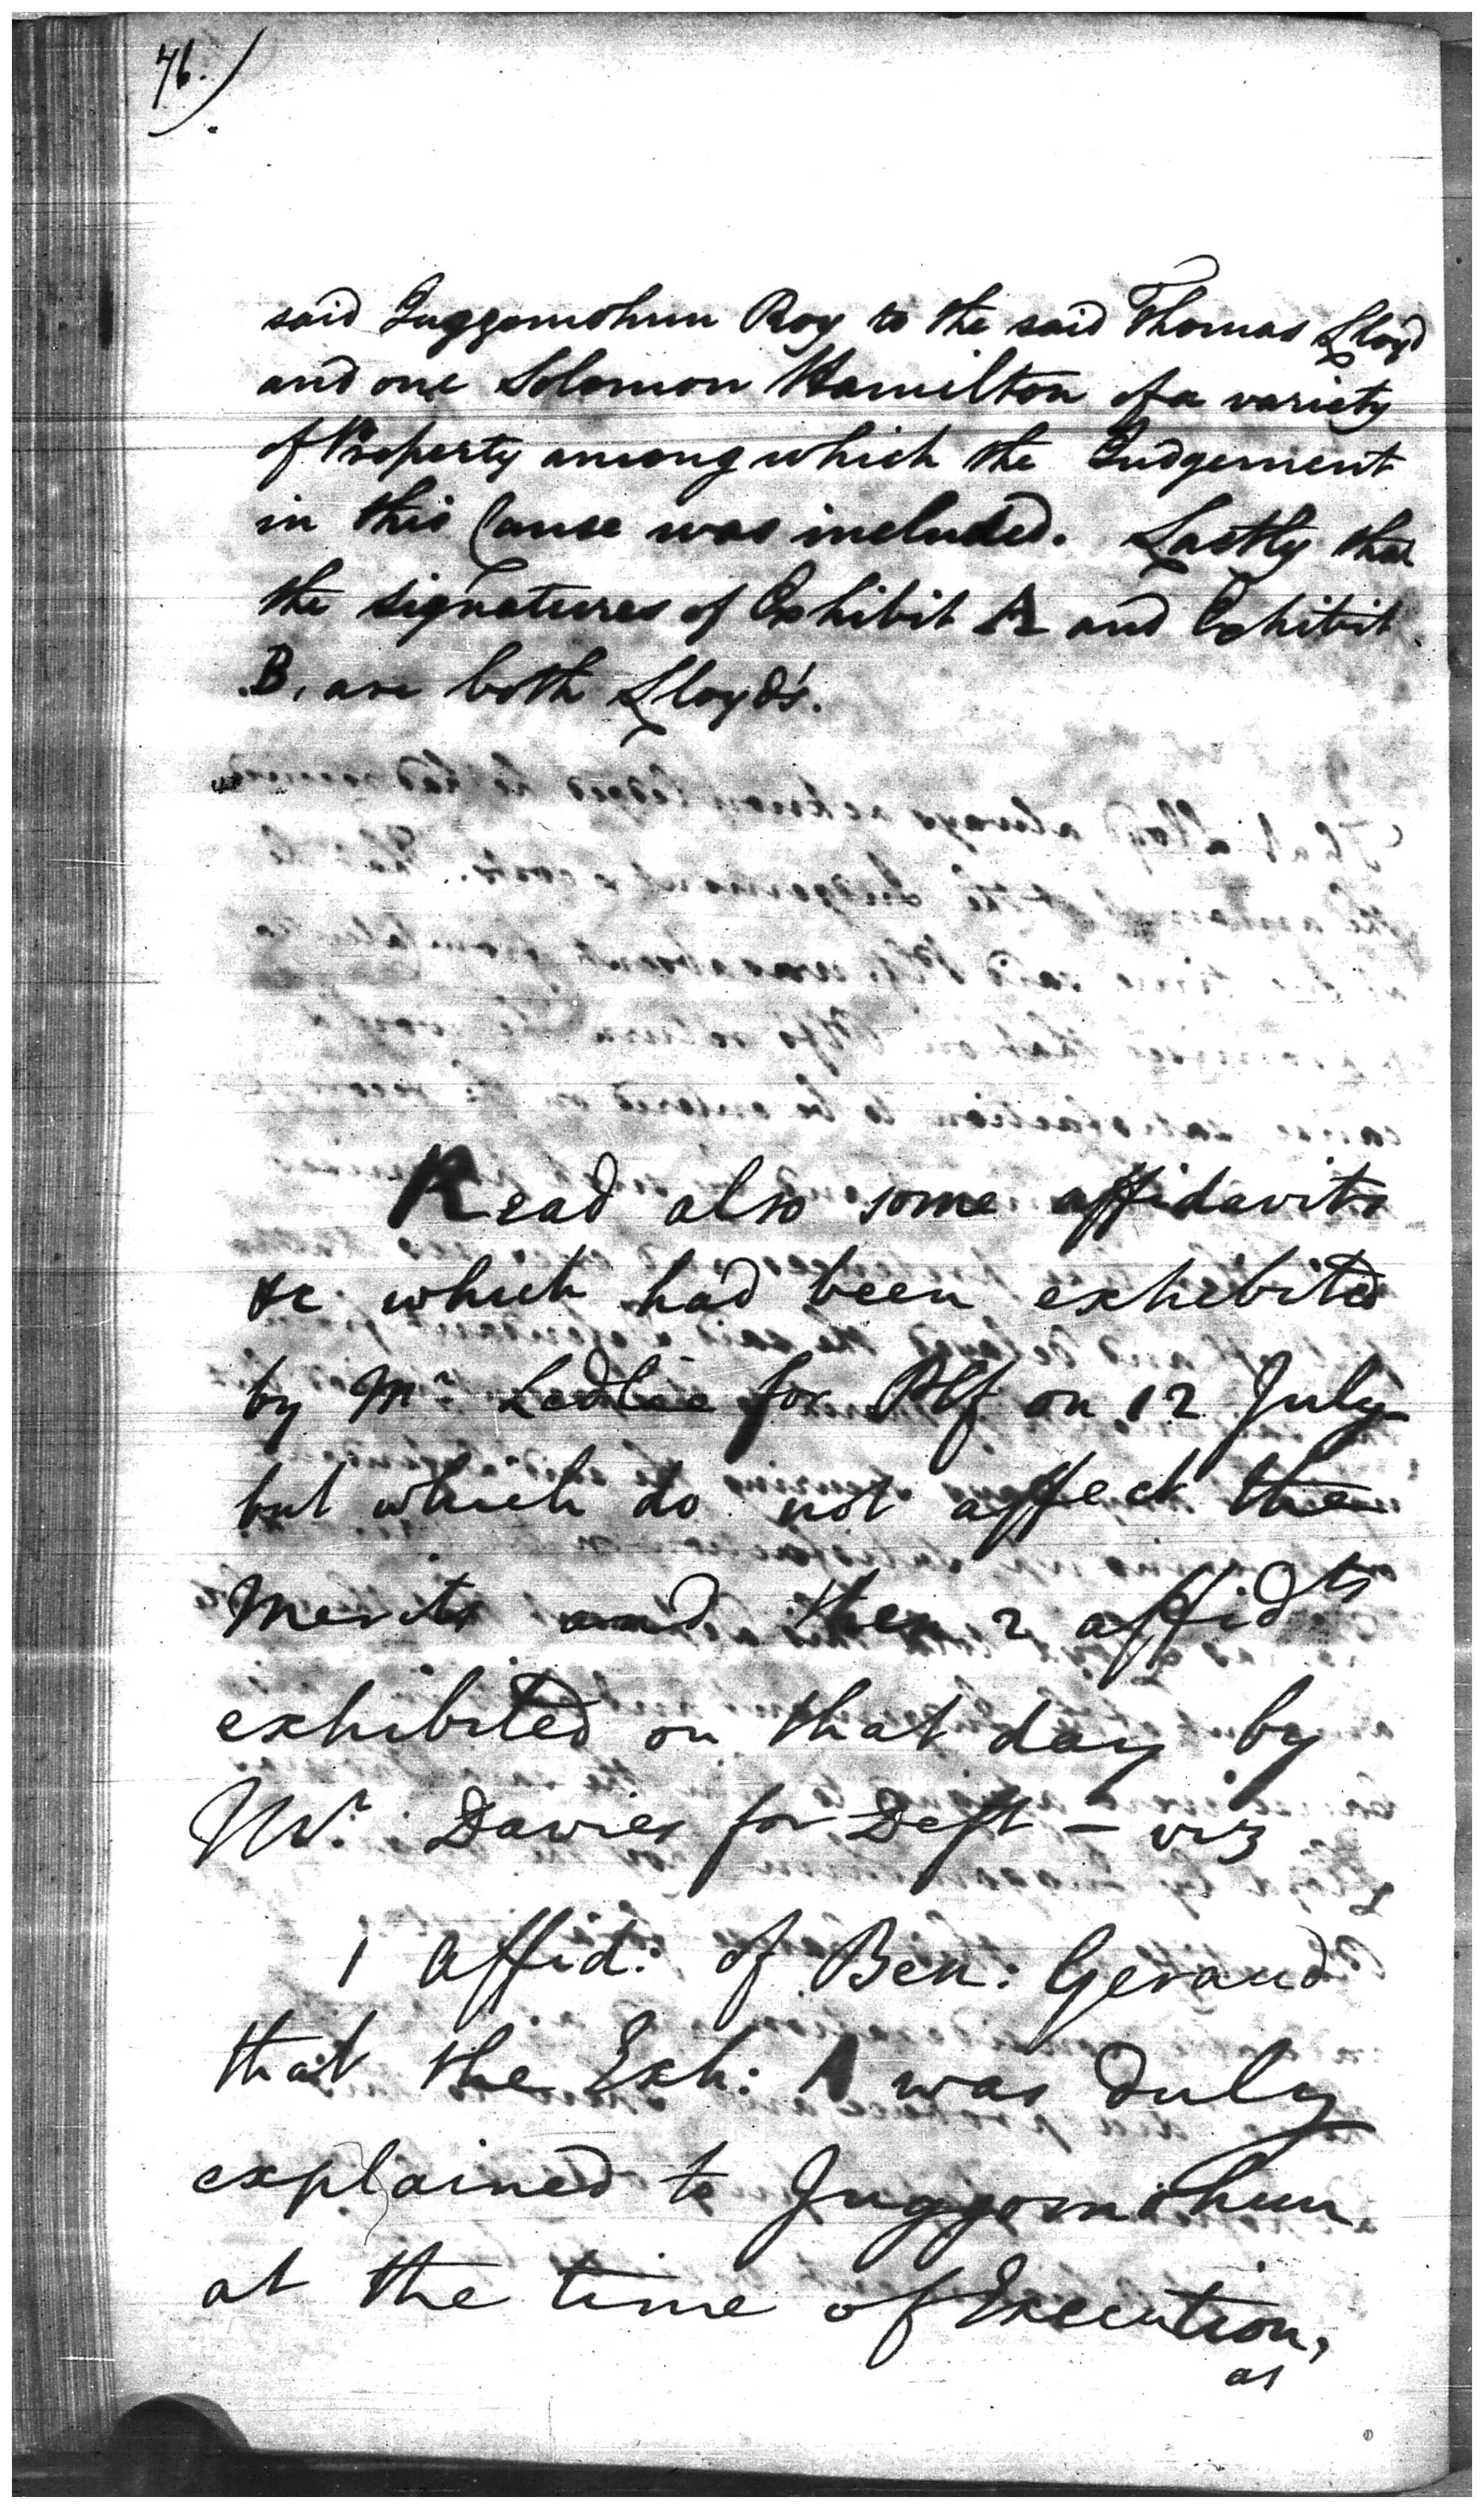 76.)
said Juggomohun Roy to the said Thomas Lloyd
and one Solomon Hamilton of a variety
of Property among which the Judgement
in this Cause was included. Lastly that
the signatures of Exhibit A and Exhibit
B, are both Lloyd's.
Read also some affidavits
&c which had been exhibited
by Mr. Ledlie for Plf on 12 July
but which do not affect the
Merits and then 2 affidts
exhibited on that day by
Mr. Davies for Deft - viz
1 Affid: of Ben: Geraud
that the Exh: A was duly
explained to Juggomohun
at the time of Execution,
as